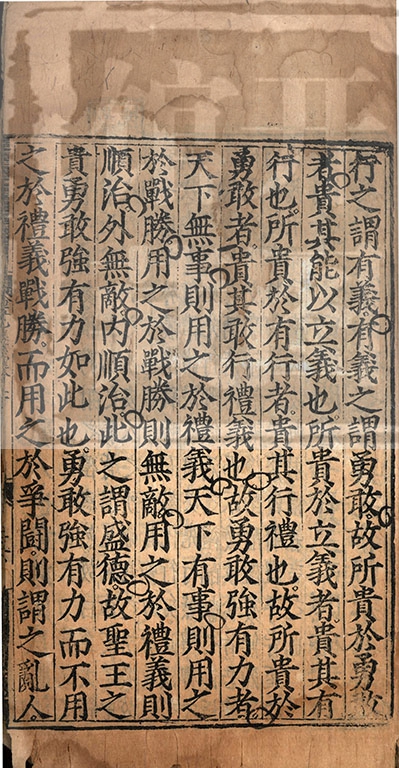 行之謂有義有義之謂勇敢故所貴於勇敢
者貴其能以立義也所貴於立義者貴其有
行也所貴於有行者貴其行禮也故所貴於
勇敢者貴其敢行禮義也故勇敢強有力者
天下無事則用之於禮義天下有事則用之
於戰勝用之於戰勝則無敵用之於禮義則
順治外無敵內順治此之謂盛德故聖王之
貴勇敢強有力如此也勇敢強有力而不用
之於禮義戰勝而用之於爭鬭則謂之亂人